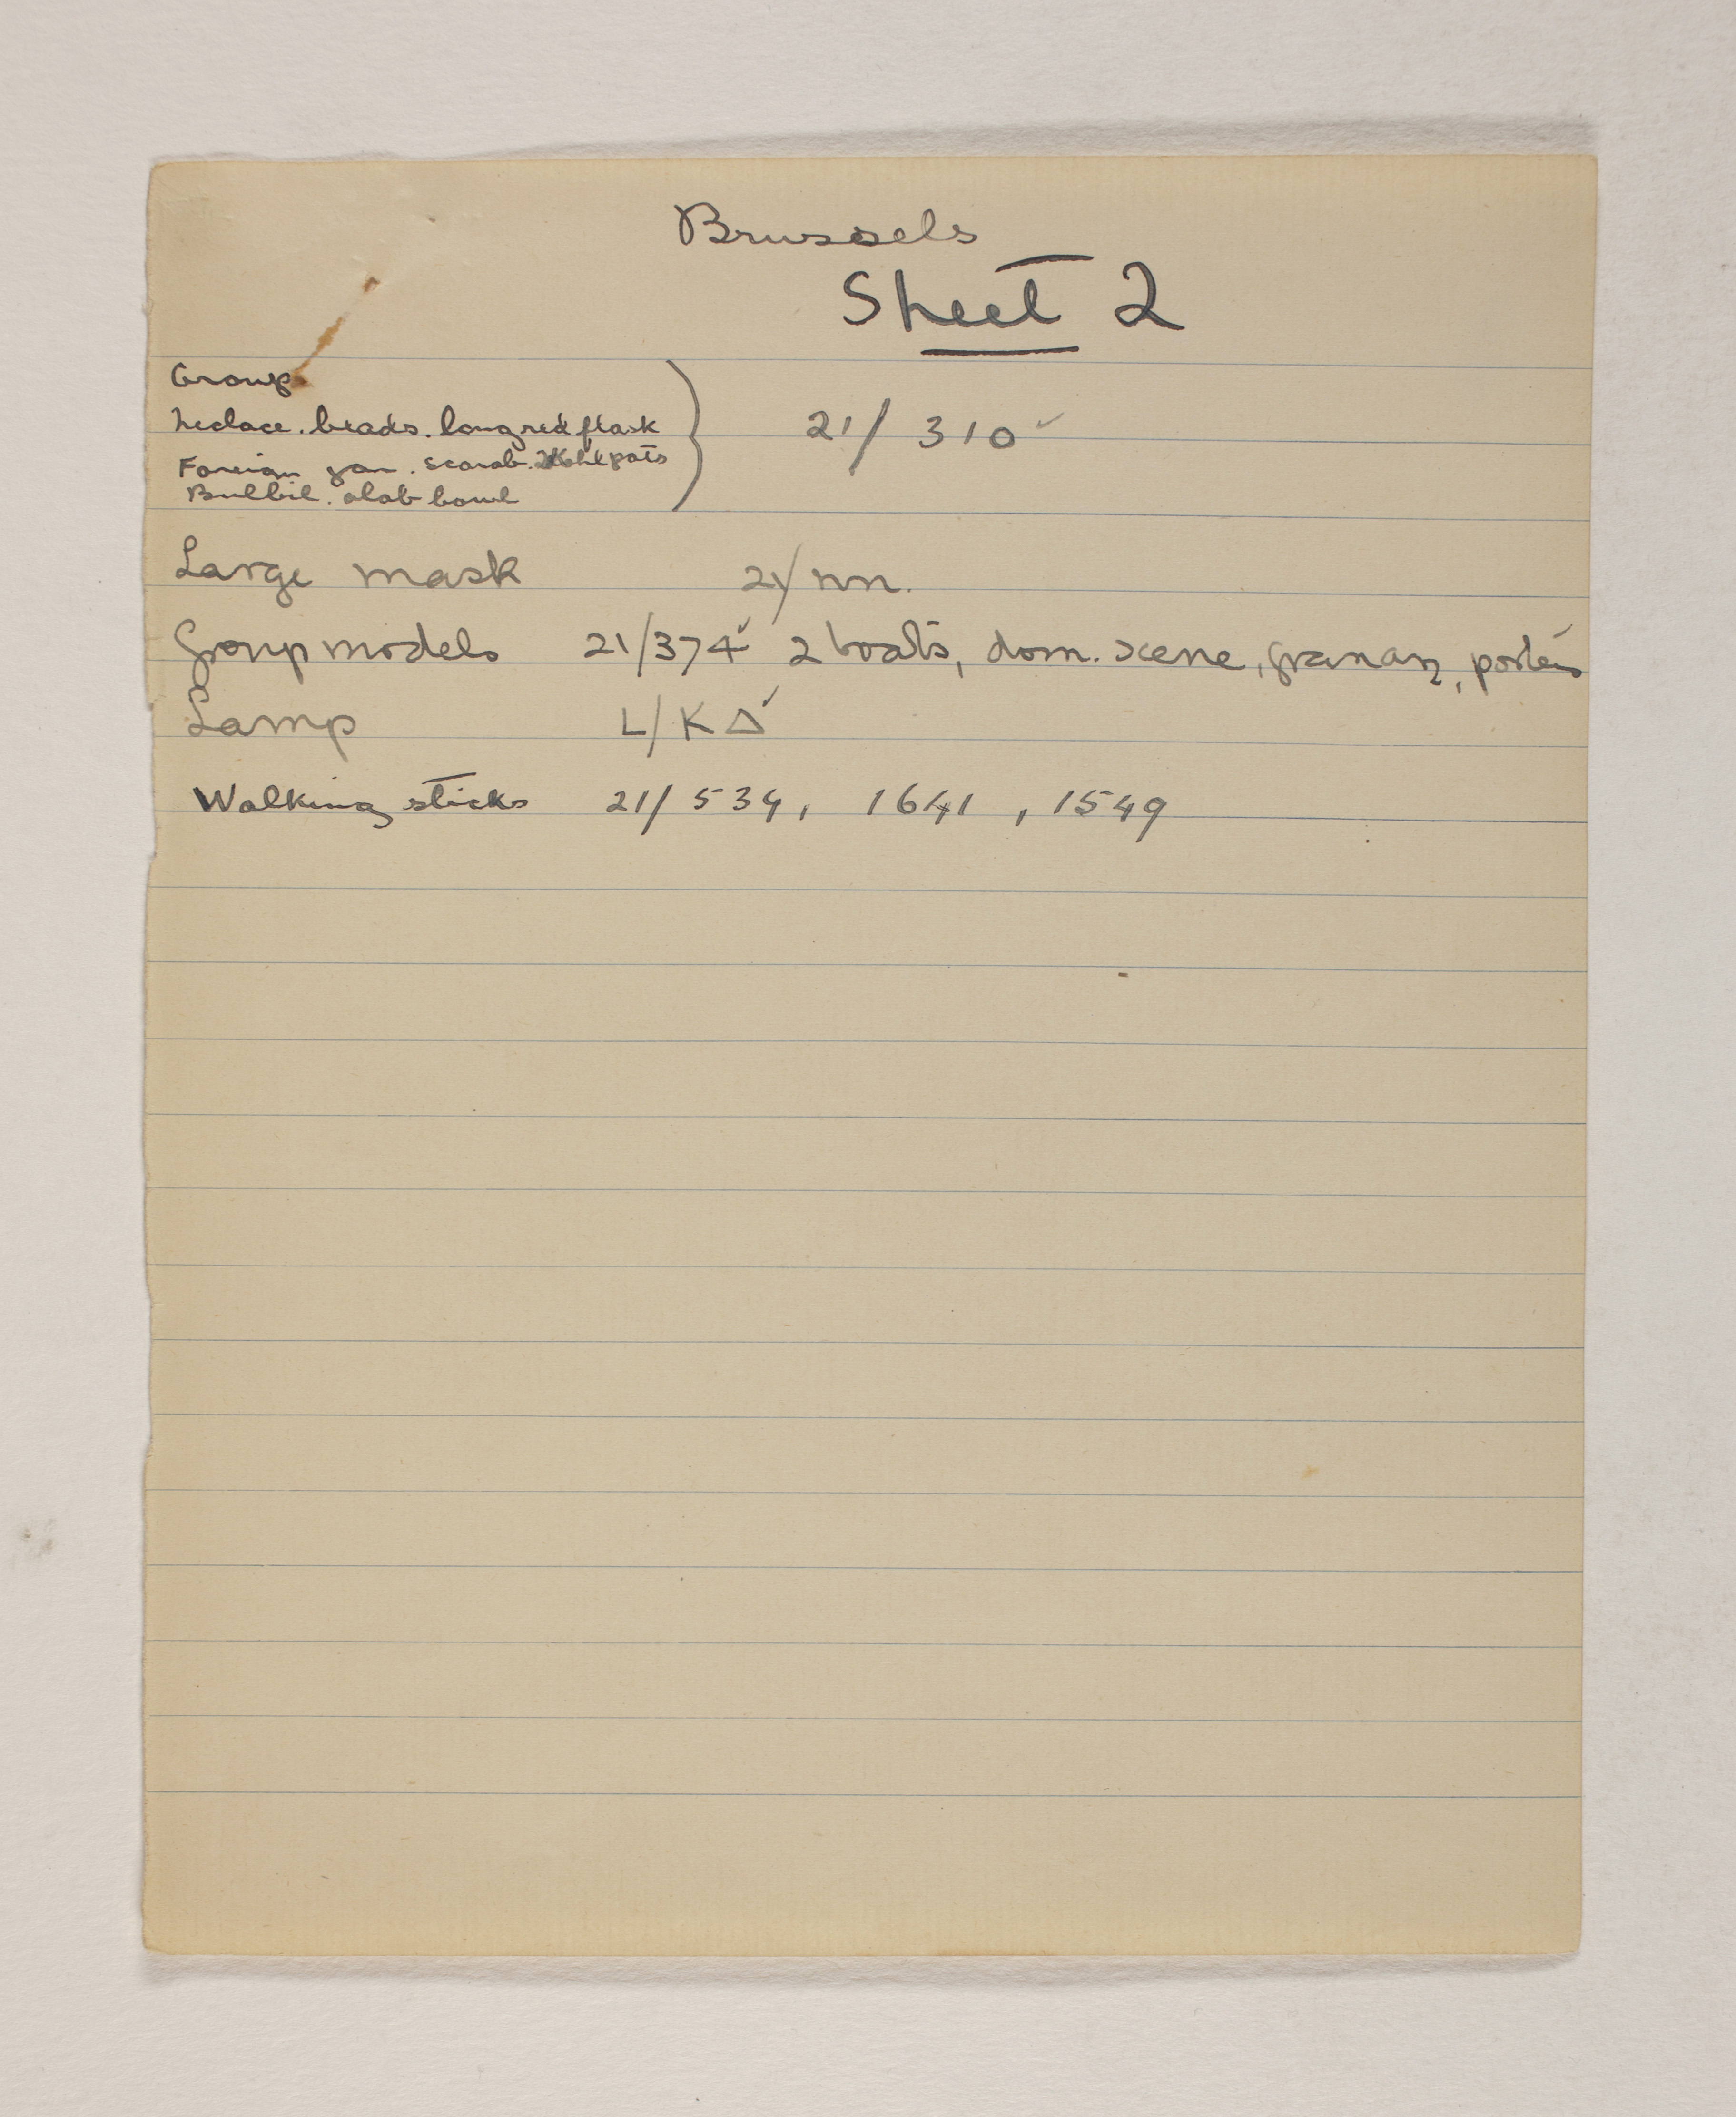 Brussels
Sheet 2
Group
Neclace. beads. long red flask
Foreign jar. scarab. 2 Kohl pots
Bulbil. alab bowl
21/ 310 ✓
Large mask 21/ nn.
Group models 21/374 ✓ 2 boats, dom. scene, granary, porters
Lamp L/KΔ ✓
Walking sticks 21/ 534, 1641, 1549